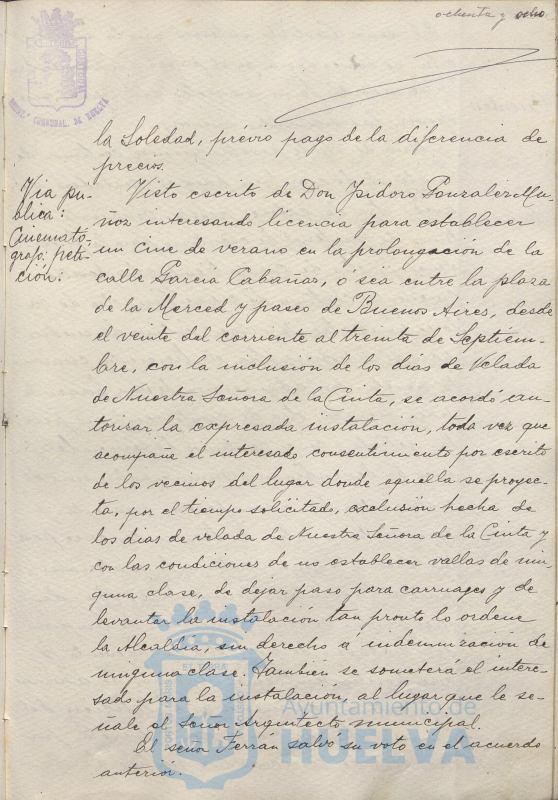 ochenta y ocho
la Soledad, prévio pago de la diferencia de
precios.
Via pú-
blica:
Cinemató-
grafo: peti-
ción:
Visto escrito de Don Ysidoro Gonzalez Mu-
ñoz interesando licencia para establecer
un cine de verano en la prolongación de la
calle García Cabañas, ó sea entre la plaza
de la Merced y paseo de Buenos Aires, desde
el veinte del corriente al treinta de Septiem-
bre, con la inclusión de los dias de Velada
de Nuestra Señora de la Cinta, se acordó au-
torizar la expresada instalación, toda vez que
acompañe el interesado consentimiento por escrito
de los vecinos del lugar donde aquella se proyec-
ta, por el tiempo solicitado, exclusión hecha de
los dias de velada de Nuestra Señora de la Cinta y
con las condiciones de no establecer vallas de nin-
guna clase, de dejar paso para carruages y de
levantar la instalación tan pronto lo ordene
la Alcaldía, sin derecho á indemnización de
ninguna clase. También se someterá el intere-
sado para la instalación, al lugar que le se-
ñale el Señor Arquitecto municipal.
El señor Ferrán salvó su voto en el acuerdo
anterior.
Ayuntamiento de
HUELVA